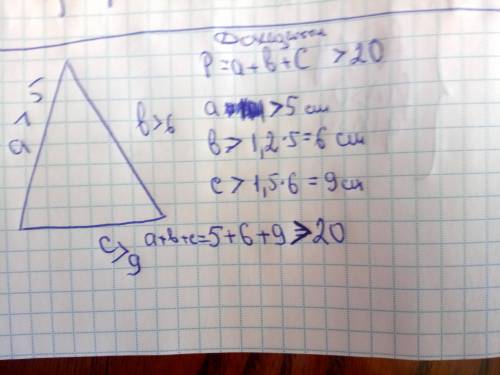 P=a+b+c >20
a >5 см
b > 1,2·5=6 см
c > 1,5·6=9см
a+b+c=5+6+9>20
a > 5
b>6
c>9